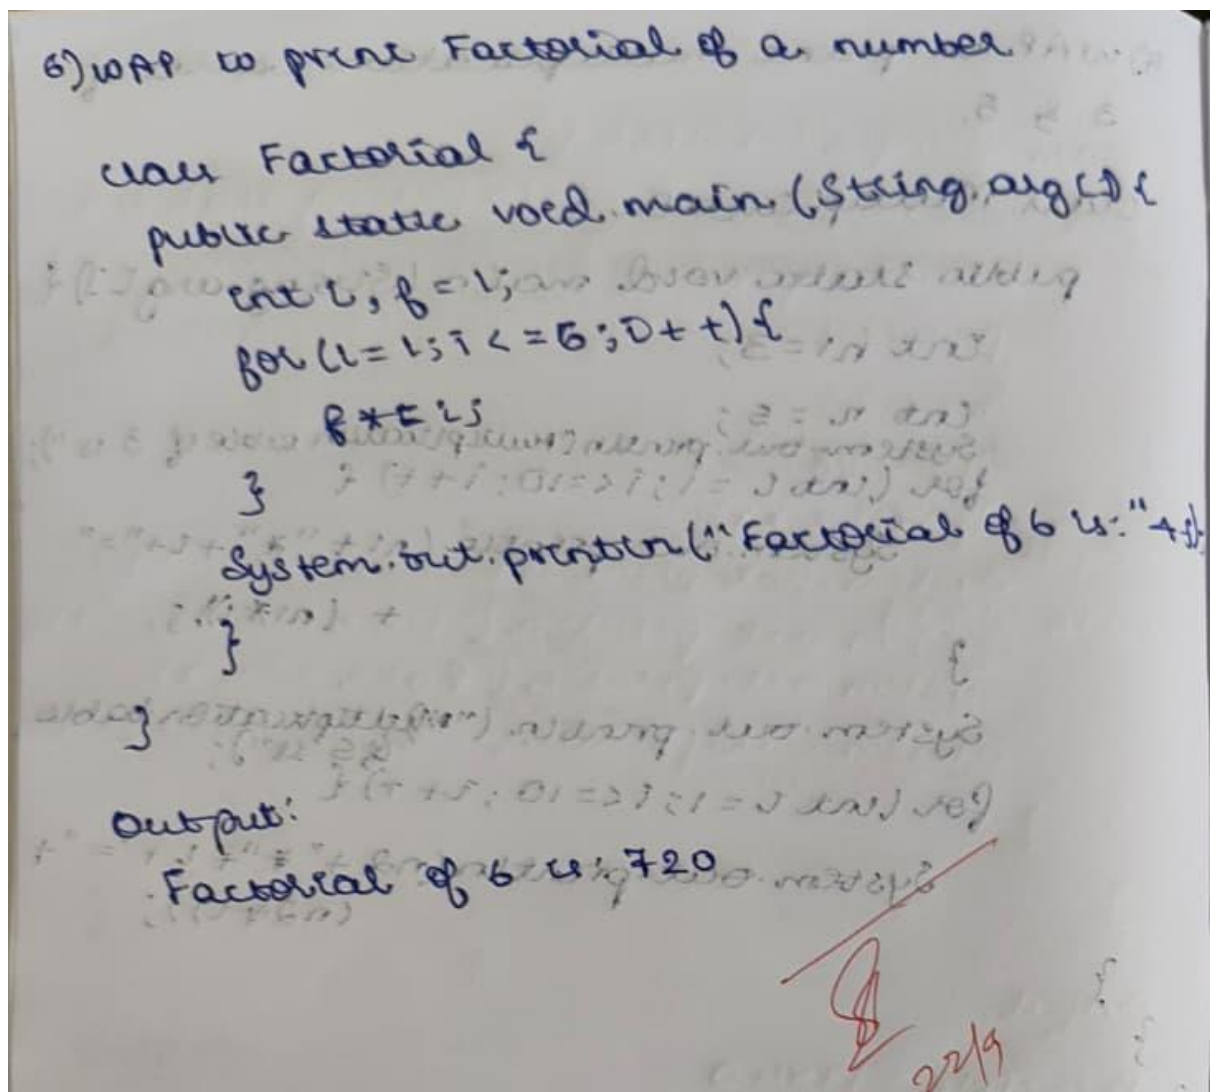 6) WAP to print Factorial of a number
class Factorial {
public static void main (String arg []) {
int i, f = 1;
for (i = 1; i <= 6; i++) {
f *= i;
}
System.out.println ("Factorial of 6 is: " + f);
}
}
Output:
Factorial of 6 is: 720
22/9